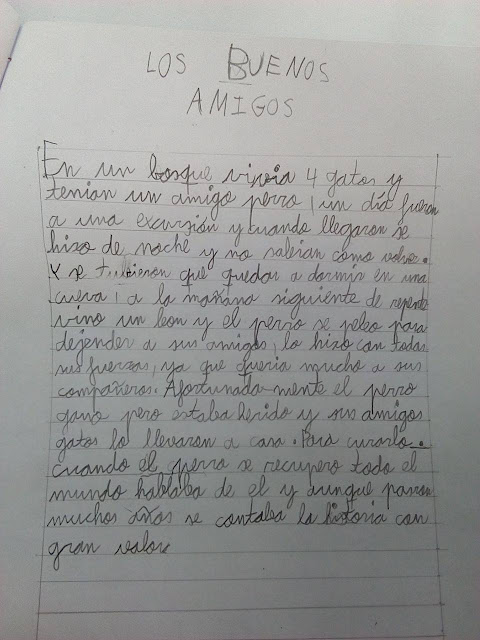 LOS BUENOS
AMIGOS
En un bosque vivia 4 gatos y
tenian un amigo perro, un día fueron
a una excursión y cuando llegaron se
hizo de noche y no sabian como volver.
Y se tubieron que quedar a dormir en una
cueva, a la mañana siguiente de repente
vino un leon y el perro se peleo para
defender a sus amigos, lo hizo con todas
sus fuerzas, ya que queria mucho a sus
compañeros. Afortunada-mente el perro
gano pero estaba herido y sus amigos
gatos lo llevaron a casa. Para curarlo.
cuando el perro se recupero todo el
mundo hablaba de el y aunque pasaron
muchos años se contaba la historia con
gran valor